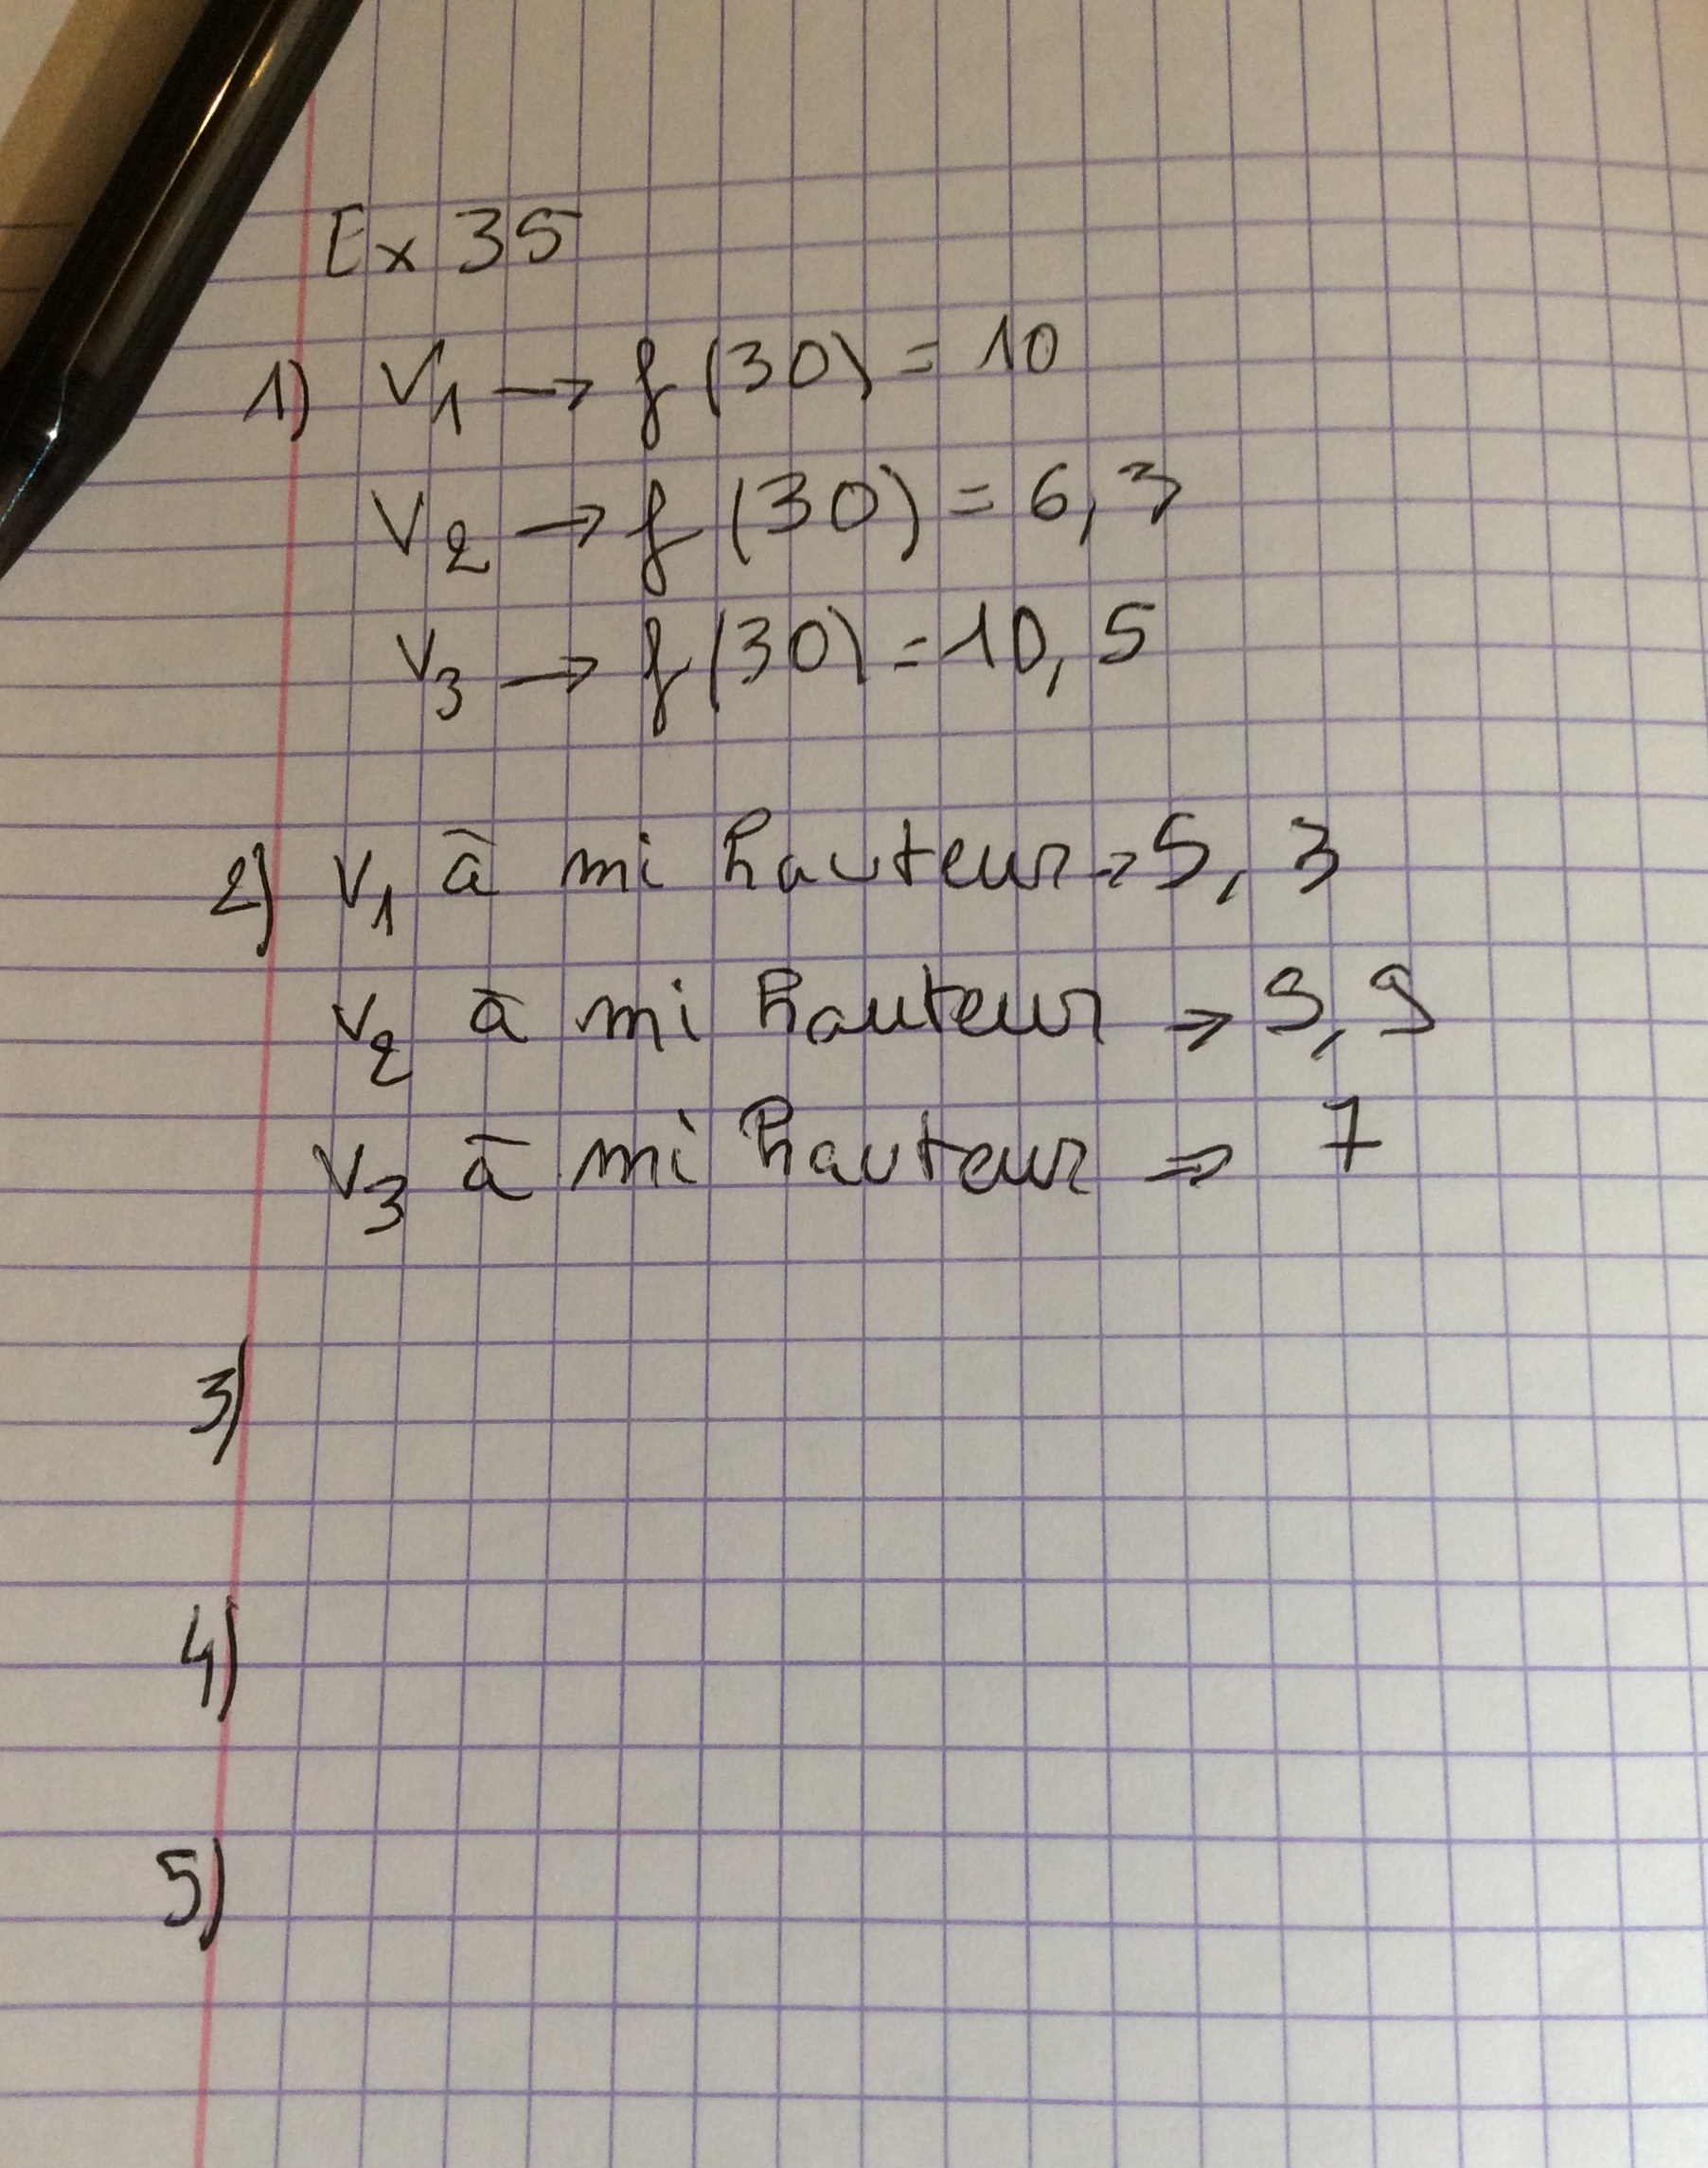 Ex 35
1) V1 → f(30) = 10
V2 → f(30) = 6,3
V3 → f(30) = 10,5
2) V1 à mi hauteur → 5,3
V2 à mi hauteur → 9,9
V3 à mi hauteur ⇒ 7
3)
4)
5)